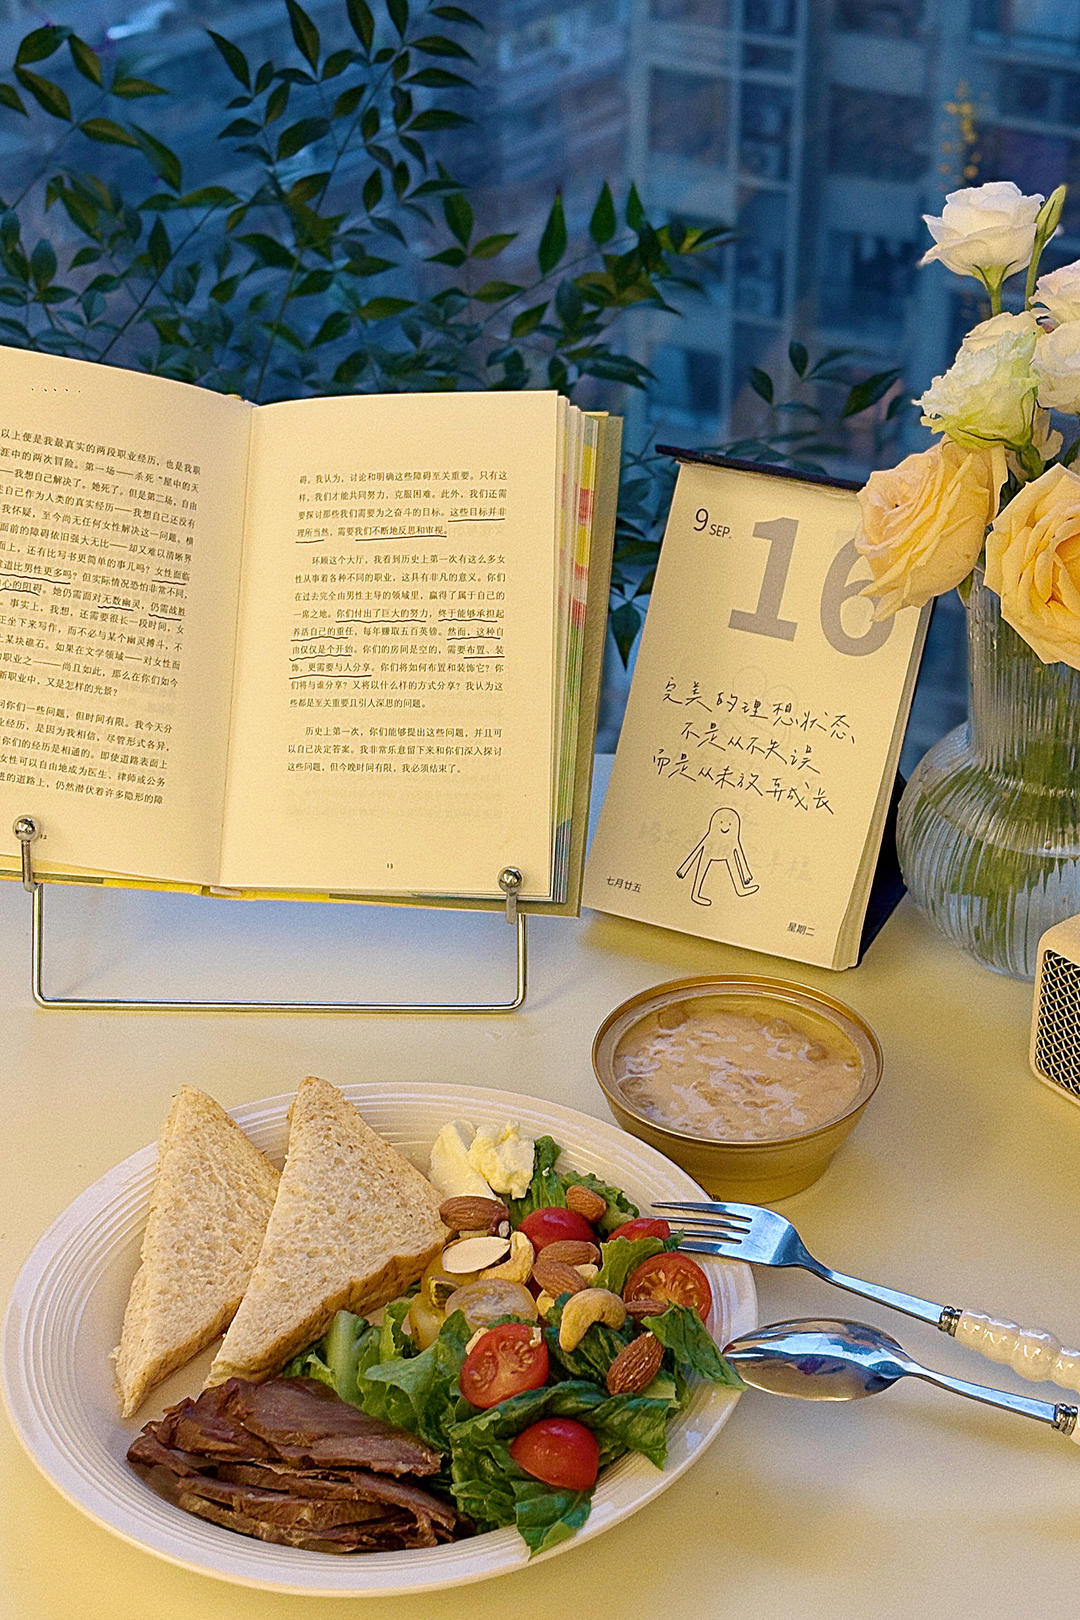 以上便是我最真实的两段职业经历，也是我职
涯中的两次冒险。第一场——杀死“屋中的天
——我想自己解决了。她死了。但是第二场，自由
自己作为人类的真实经历——我想自己还没有
我怀疑，至今尚无任何女性解决这一问题，横
面前的障碍依旧强大无比——却又难以清晰界
面上，还有比写书更简单的事儿吗？女性面临
道比男性更多吗？但实际情况恐怕非常不同，
心的阻碍。她仍需面对无数幽灵，仍需战胜
。事实上，我想，还需要很长一段时间，女
正坐下来写作，而不必与某个幽灵搏斗，不
上某块礁石。如果在文学领域——对女性而
职业之一——尚且如此，那么在你们如今
新职业中，又是怎样的光景？
问你们一些问题，但时间有限。我今天分
业经历，是因为我相信，尽管形式各异，
你们的经历是相通的。即使道路表面上
女性可以自由地成为医生、律师或公务
进的道路上，仍然潜伏着许多隐形的障
12
碍。我认为，讨论和明确这些障碍至关重要。只有这
样，我们才能共同努力，克服困难。此外，我们还需
要探讨那些我们需要为之奋斗的目标。这些目标并非
理所当然，需要我们不断地反思和审视。
环顾这个大厅，我看到历史上第一次有这么多女
性从事着各种不同的职业，这具有非凡的意义。你们
在过去完全由男性主导的领域里，赢得了属于自己的
一席之地。你们付出了巨大的努力，终于能够承担起
养活自己的重任，每年赚取五百英镑。然而，这种自
由仅仅是个开始。你们的房间是空的，需要布置、装
饰，更需要与人分享。你们将如何布置和装饰它？你
们将与谁分享？又将以什么样的方式分享？我认为这
些都是至关重要且引人深思的问题。
历史上第一次，你们能够提出这些问题，并且可
以自己决定答案。我非常乐意留下来和你们深入探讨
这些问题，但今晚时间有限，我必须结束了。
13
9 SEP. 16
完美的理想状态、
不是从不失误
而是从未放弃成长
七月廿五
星期二